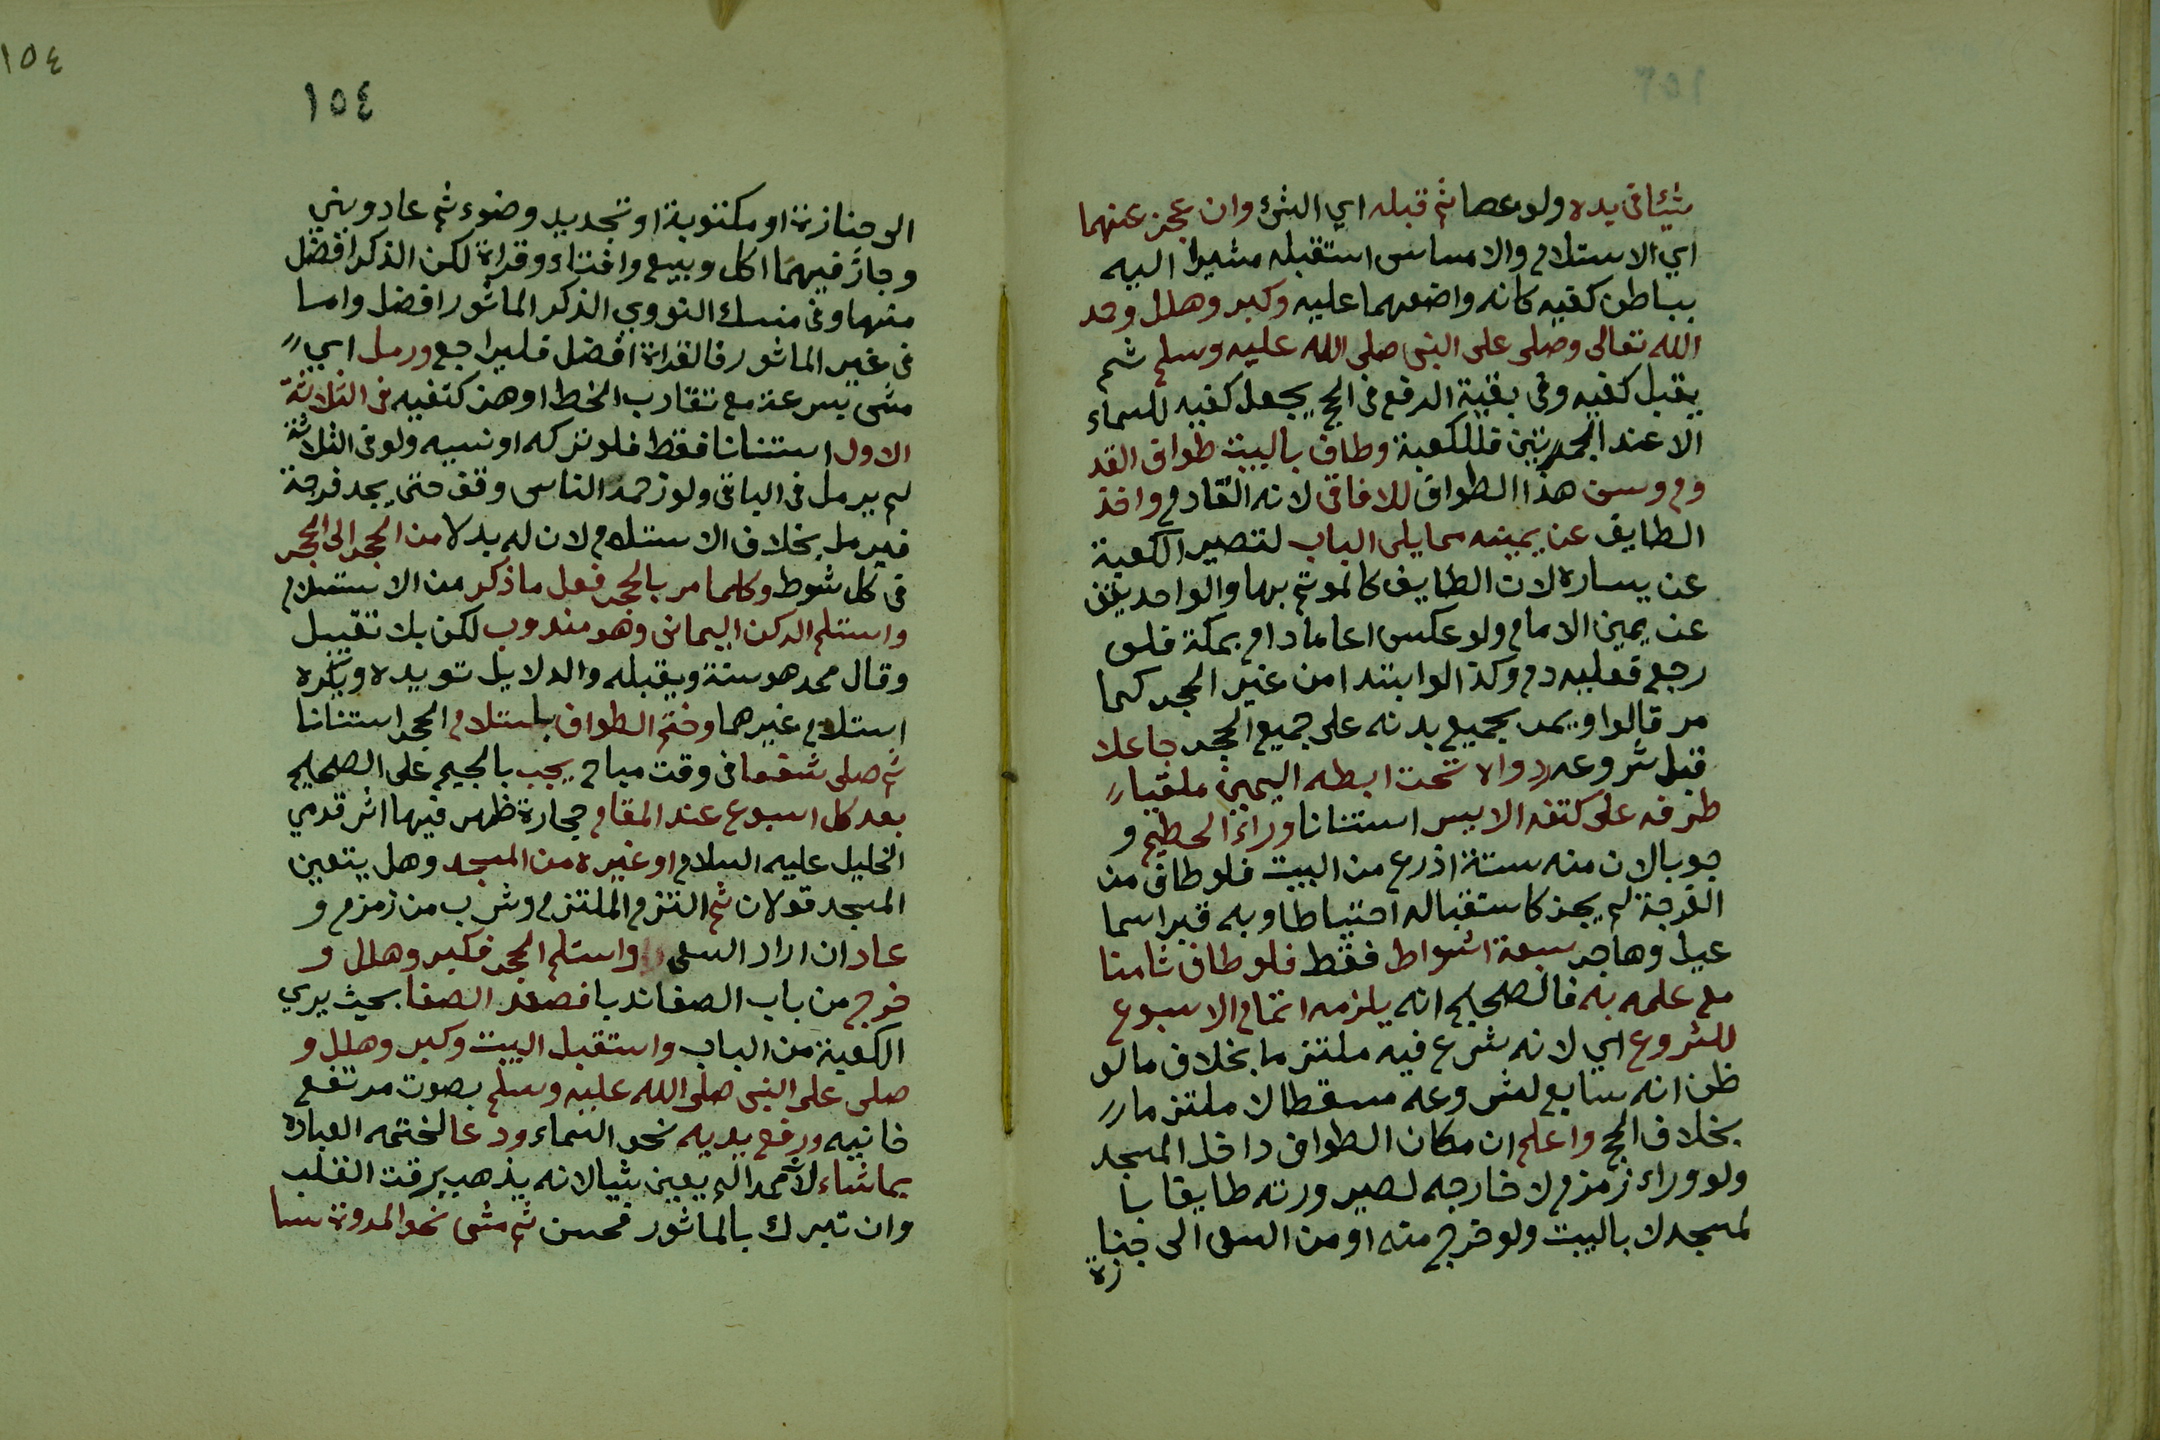 شيئا فى يده ولو عصا ثم قبله اي الشئ وان عجز عنهما
اي الاستلام والامساس استقبله مشيرا اليه
بباطن كفيه كانه واضعهما عليه وكبر وهلل وحمد
الله تعالى وصلى على النبى صلى الله عليه وسلم ثم
يقبل كفيه وفى بقية الرفع فى الحج يجعل كفيه للسماء
الا عند الجمرتين فللكعبة وطاف بالبيت طواف القد
وم وسن هذا الطواف للافاقى لانه القادم واخذ
الطايف عن يمينه مما يلى الباب لتصير الكعبة
عن يساره لان الطايف كالموتم بها والواحد يقف
عن يمين الامام ولو عكس اعاد مادام بمكة فلو
رجع فعليه دم وكذا لو ابتدا من غير الحجر كما
مر قالوا ويمر بجميع بدنه على جميع الحجر جاعلا
قبل شروعه رداه تحت ابطه اليمين ملقيا
طرفه على كتفه الايسر استنانا وراء الحطيم و
جوبا لان منه ستة اذرع من البيت فلو طاف من
الفرجة لم يجز كاستقباله احتياطا وبه قبر اسما
عيل وهاجر سبعة اشواط فقط فلو طاف ثامنا
مع علمه به فالصحيح انه يلزمه اتمام الاسبوع
للشروع اي لانه شرع فيه ملتزما بخلاف مالو
ظن انه سابع لشروعه مسقطا لا ملتزما
بخلاف الحج واعلم ان مكان الطواف داخل المسجد
ولو وراء زمزم لا خارجه لصيرورته طايفا با
لمسجد لا بالبيت ولو خرج منه او من السعى الى جنا
زة
١٥٤
١٥٤
الى جنازة او مكتوبة او تجديد وضوء ثم عاد وبني
وجاز فيهما اكل وبيع وافتاء وقراة لكن الذكر افضل
منها وفى منسك النووي الذكر الماثور افضل واما
فى غير الماثور فالقراة افضل فليراجع ورمل اي
مشى بسرعة مع تقارب الخطا وهز كتفيه فى الثلاثة
الاول استنانا فقط فلو تركه او نسيه ولو فى الثلاثة
لم يرمل فى الباقى ولو زحمه الناس وقف حتى يجد فرجة
فيرمل بخلاف الاستلام لان له بدلا من الحجر الى الحجر
فى كل شوط وكلما مر بالحجر فعل ما ذكر من الاستلام
واستلم الركن اليمانى وهو مندوب لكن بلا تقبيل
وقال محمد هو سنة ويقبله والدلايل تويده ويكره
استلام غيرهما وختم الطواف باستلام الحجر استنانا
ثم صلى شفعا فى وقت مباح يجب بالجيم على الصحيح
بعد كل اسبوع عند المقام حجارة ظهر فيها اثر قدمي
الخليل عليه السلام او غيره من المسجد وهل يتعين
المسجد قولان ثم التزم الملتزم وشرب من زمزم و
عاد ان اراد السعى واستلم الحجر فكبر وهلل و
خرج من باب الصفا ندبا فصعد الصفا بحيث يري
الكعبة من الباب واستقبل البيت وكبر وهلل و
صلى على النبى صلى الله عليه وسلم بصوت مرتفع
خانيه ورفع يديه نحو السماء ودعا لختمه العبادة
بما شاء لان محمدا لم يعين شيا لانه يذهب برقت القلب
وان تبرك بالماثور فحسن ثم مشى نحو المروة سا